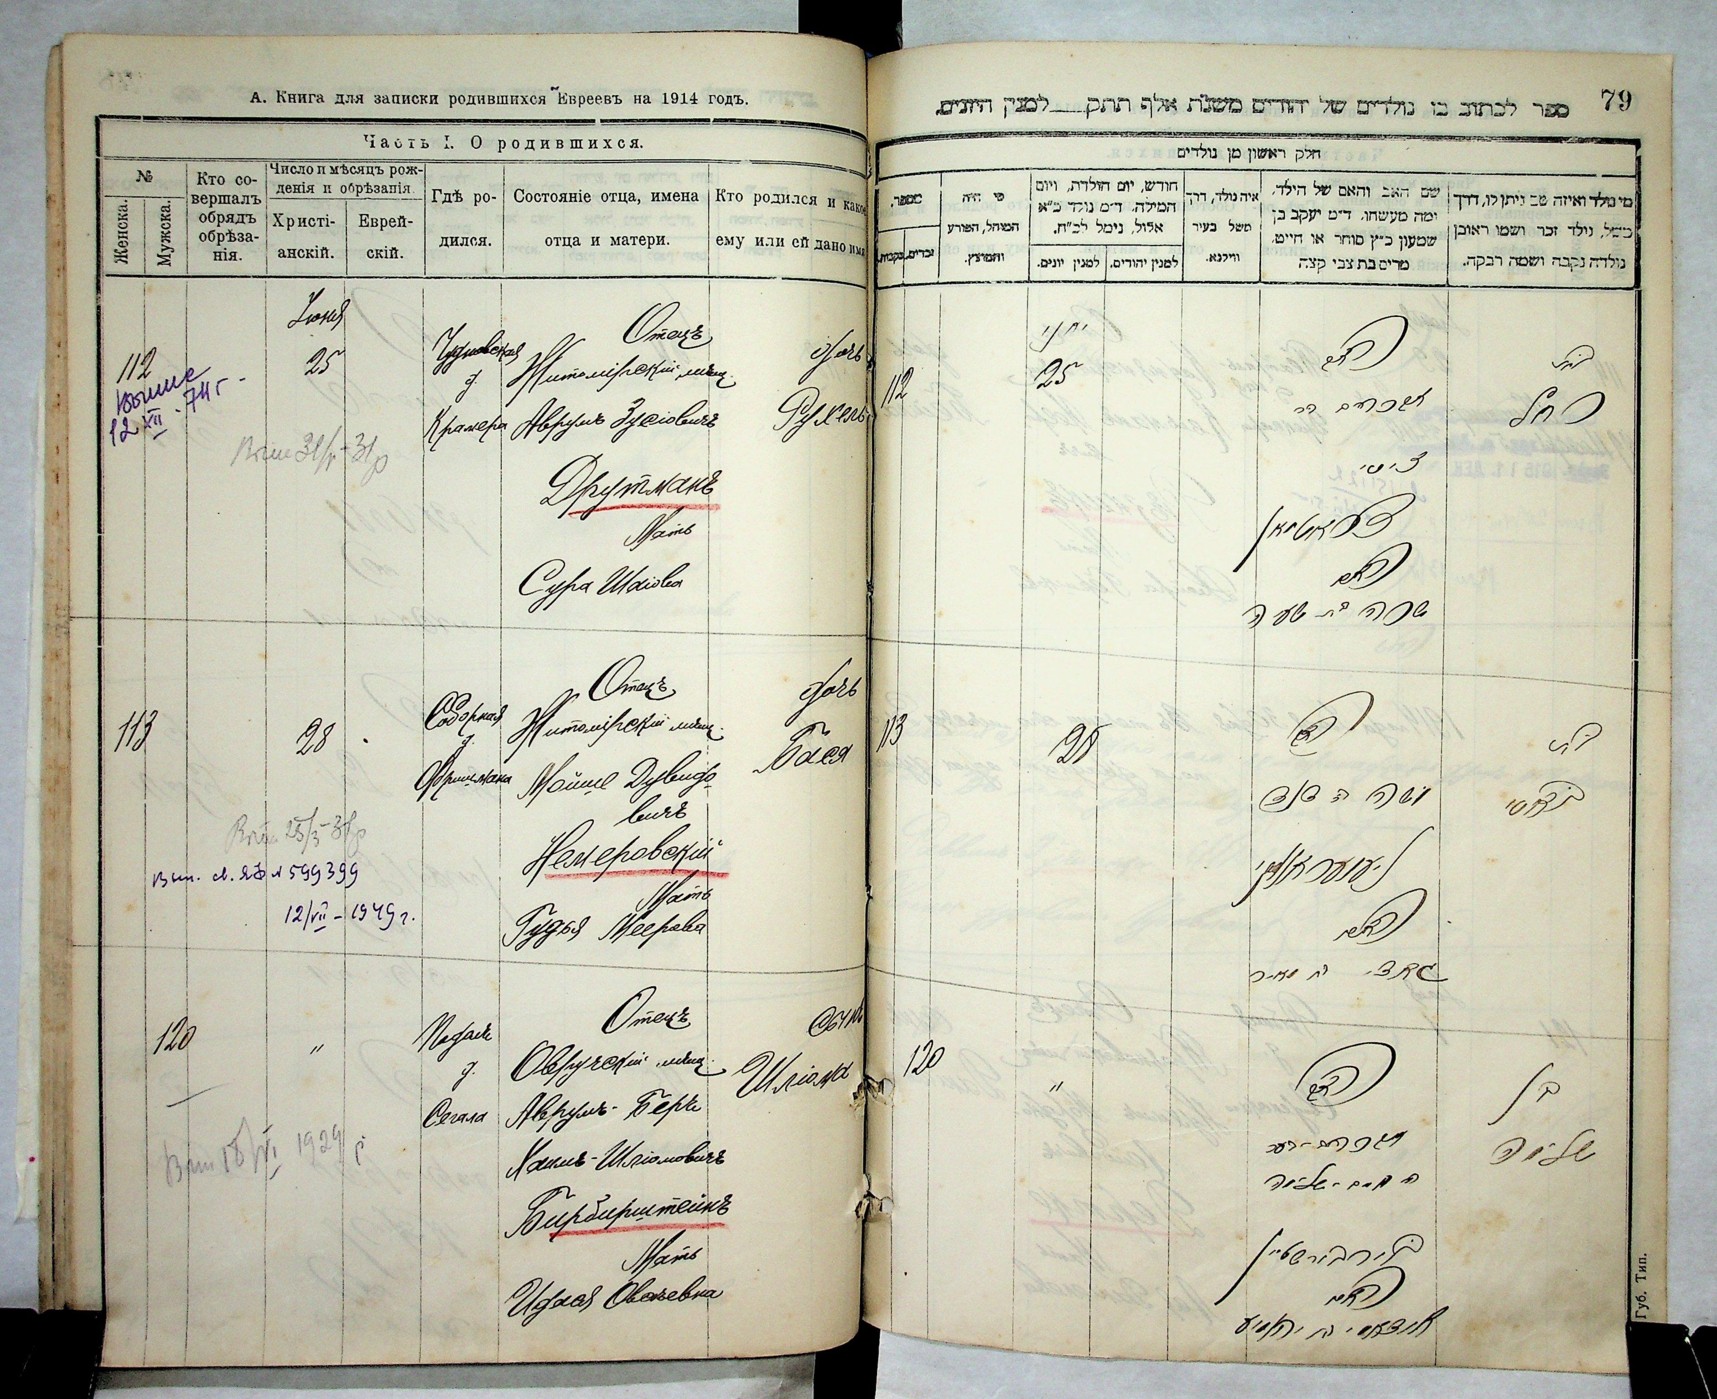 А. Книга для записки родившихся Евреевъ на 1914 годъ.
Часть I. О родившихся.
№
Женска.
Мужска.
Кто совершалъ обрядъ обрѣзанія.
Число и мѣсяцъ рожденія и обрѣзанія.
Христіанскій.
Еврейскій.
Гдѣ родился.
Состояніе отца, имена отца и матери.
Кто родился и какое ему или ей дано имя
Іюня
112
25
Чудновская
д.
Крамера
Отецъ
Житомірскій мѣщ.
Аврумъ Зусіовичъ
Друтманъ
Мать
Сура Шаіова
дочь
Рухель
12 XII 74 г
113
28
Соборная
д.
Фришмана
Отецъ
Житомірскій мѣщ.
Мойше Дувидо-
вичъ
Немеровскій
Мать
Гудья Меерова
дочь
Бася
Вып. св. ЯФ № 599399
12/VII – 1949 г.
120
"
д.
Сегала
Отецъ
Овручскій мѣщ.
Аврумъ-Беръ
Хаимъ-Шліомовичъ
Бирбирштейнъ
Мать
Идася Овсеевна
сынъ
Шліома
79
ספר לכתוב בו נולדים של יהודים משנת אלף תתק למנין היונים.
חלק ראשון מן נולדים
מספר.
זכרים.
נקבות.
מי היה
המוהל, הפורע
והמוצץ.
חודש, יום הולדת, ויום
המילה. ד"מ נולד כ"א
אלול, נימל לכ"ח.
למנין יונים.
למנין יהודים.
איה נולד, דרך
משל בעיר
ווילנא.
שם האב והאם של הילד,
ומה מעשהו. ד"מ יעקב בן
שמעון כ"ץ סוחר או חייט,
מרים בת צבי קצה
מי נולד ואיזה שם ניתן לו, דרך
משל, נולד זכר ושמו ראובן
נולדה נקבה ושמה רבקה.
112
יוני
25
האב
אברהם בר
זיסי
דרוטמאן
האם
שרה בת ישעיה
בת
רחל
113
28
האב
משה בר דוד
נעמעראווסקי
האם
בת מאיר
בת
באסי
120
"
האב
אברהם-בער
בר חיים-שלמה
בירבירשטיין
האם
בן
שלמה
Губ. Тип.